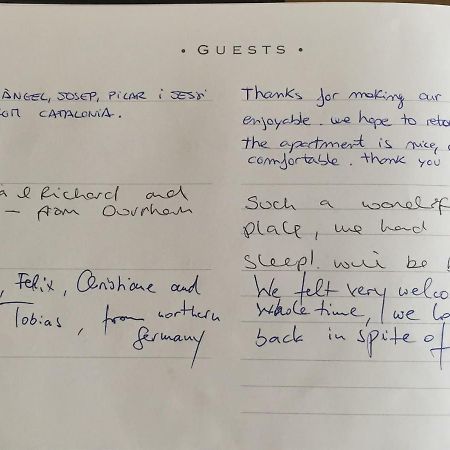 • GUESTS •
ÀNGEL, JOSEP, PILAR i JESSI
CATALONIA.
Thanks for making our
enjoyable. we hope to
the apartment is nice,
comfortable. thank you
Richard and
— from Durham
Such a
place, we had
sleep! we'll be
, Felix, Christiane and
Tobias, from northern
Germany
We felt very
whole time, we
back in spite of